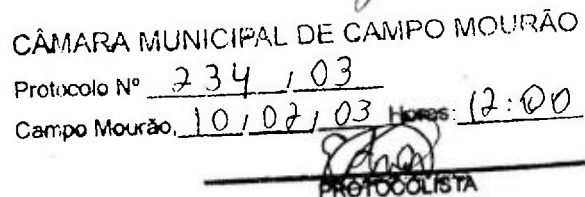 CÂMARA MUNICIPAL DE CAMPO MOURÃO
Protocolo Nº 234 / 03
Campo Mourão, 10 / 02 / 03 Horas: 12:00
PROTOCOLISTA